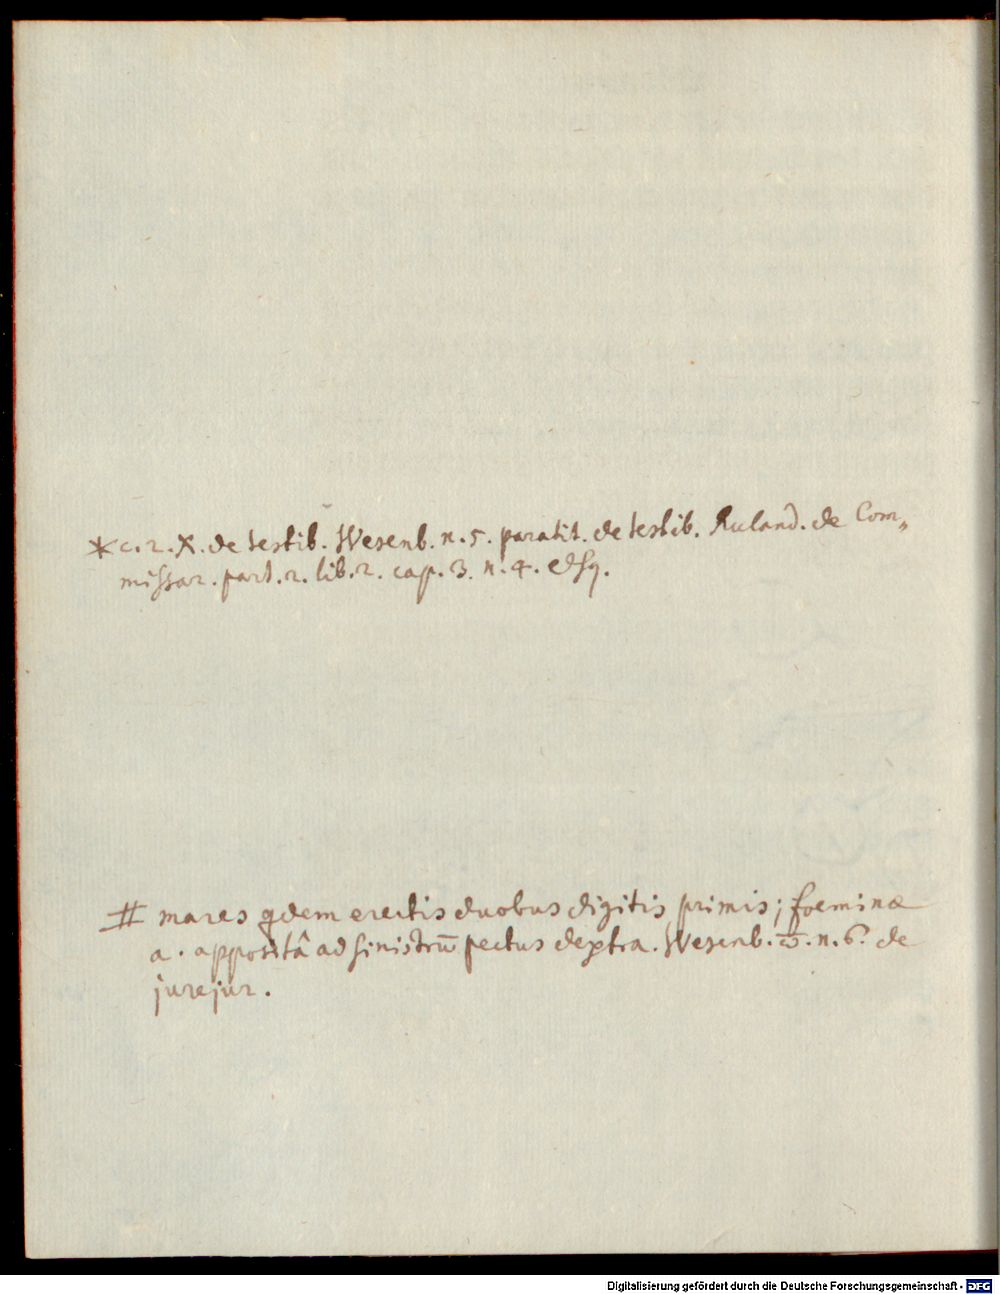 * c. 2. X. de testib. Wesenb. n. 5. paratit. de testib. Ruland. de Com„
missar. part. 2. lib. 2. cap. 3. n. 4. et sq.
# mares qdem erectis duobus digitis primis; foeminæ
a. appositâ ad sinistrū pectus dextra. Wesenb. π. n. 6. de
jurejur.
Digitalisierung gefördert durch die Deutsche Forschungsgemeinschaft - DFG